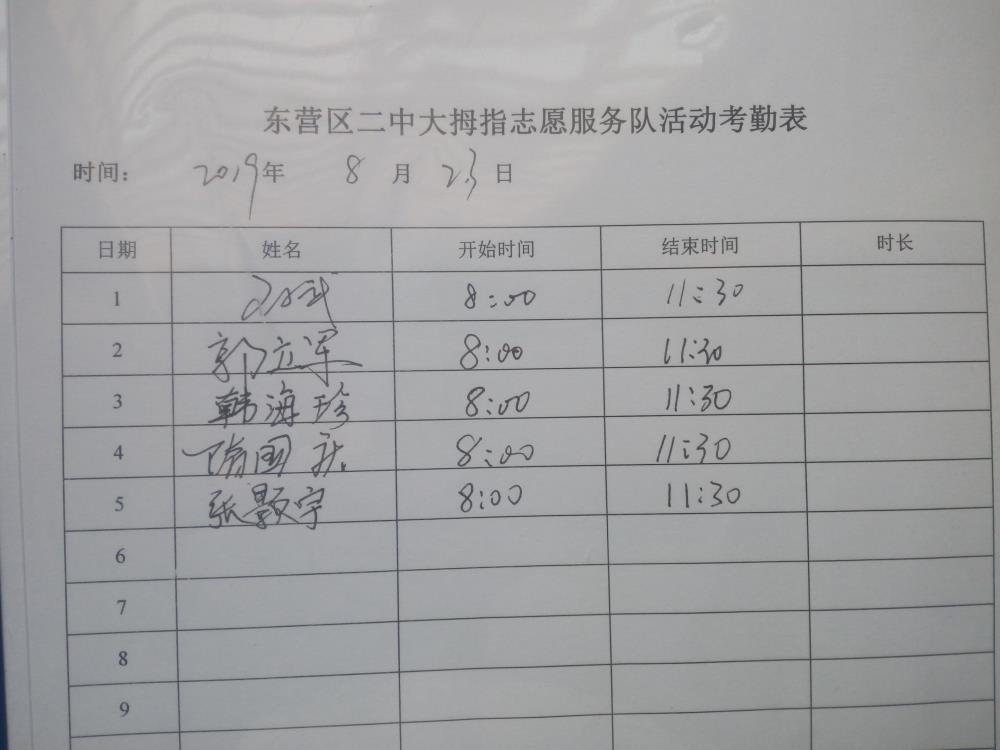 东营区二中大拇指志愿服务队活动考勤表
时间： 2019年 8 月 23 日
日期 姓名 开始时间 结束时间 时长
1 8:00 11:30
2 郭立军 8:00 11:30
3 韩海珍 8:00 11:30
4 隋国庆 8:00 11:30
5 张颢宇 8:00 11:30
6
7
8
9